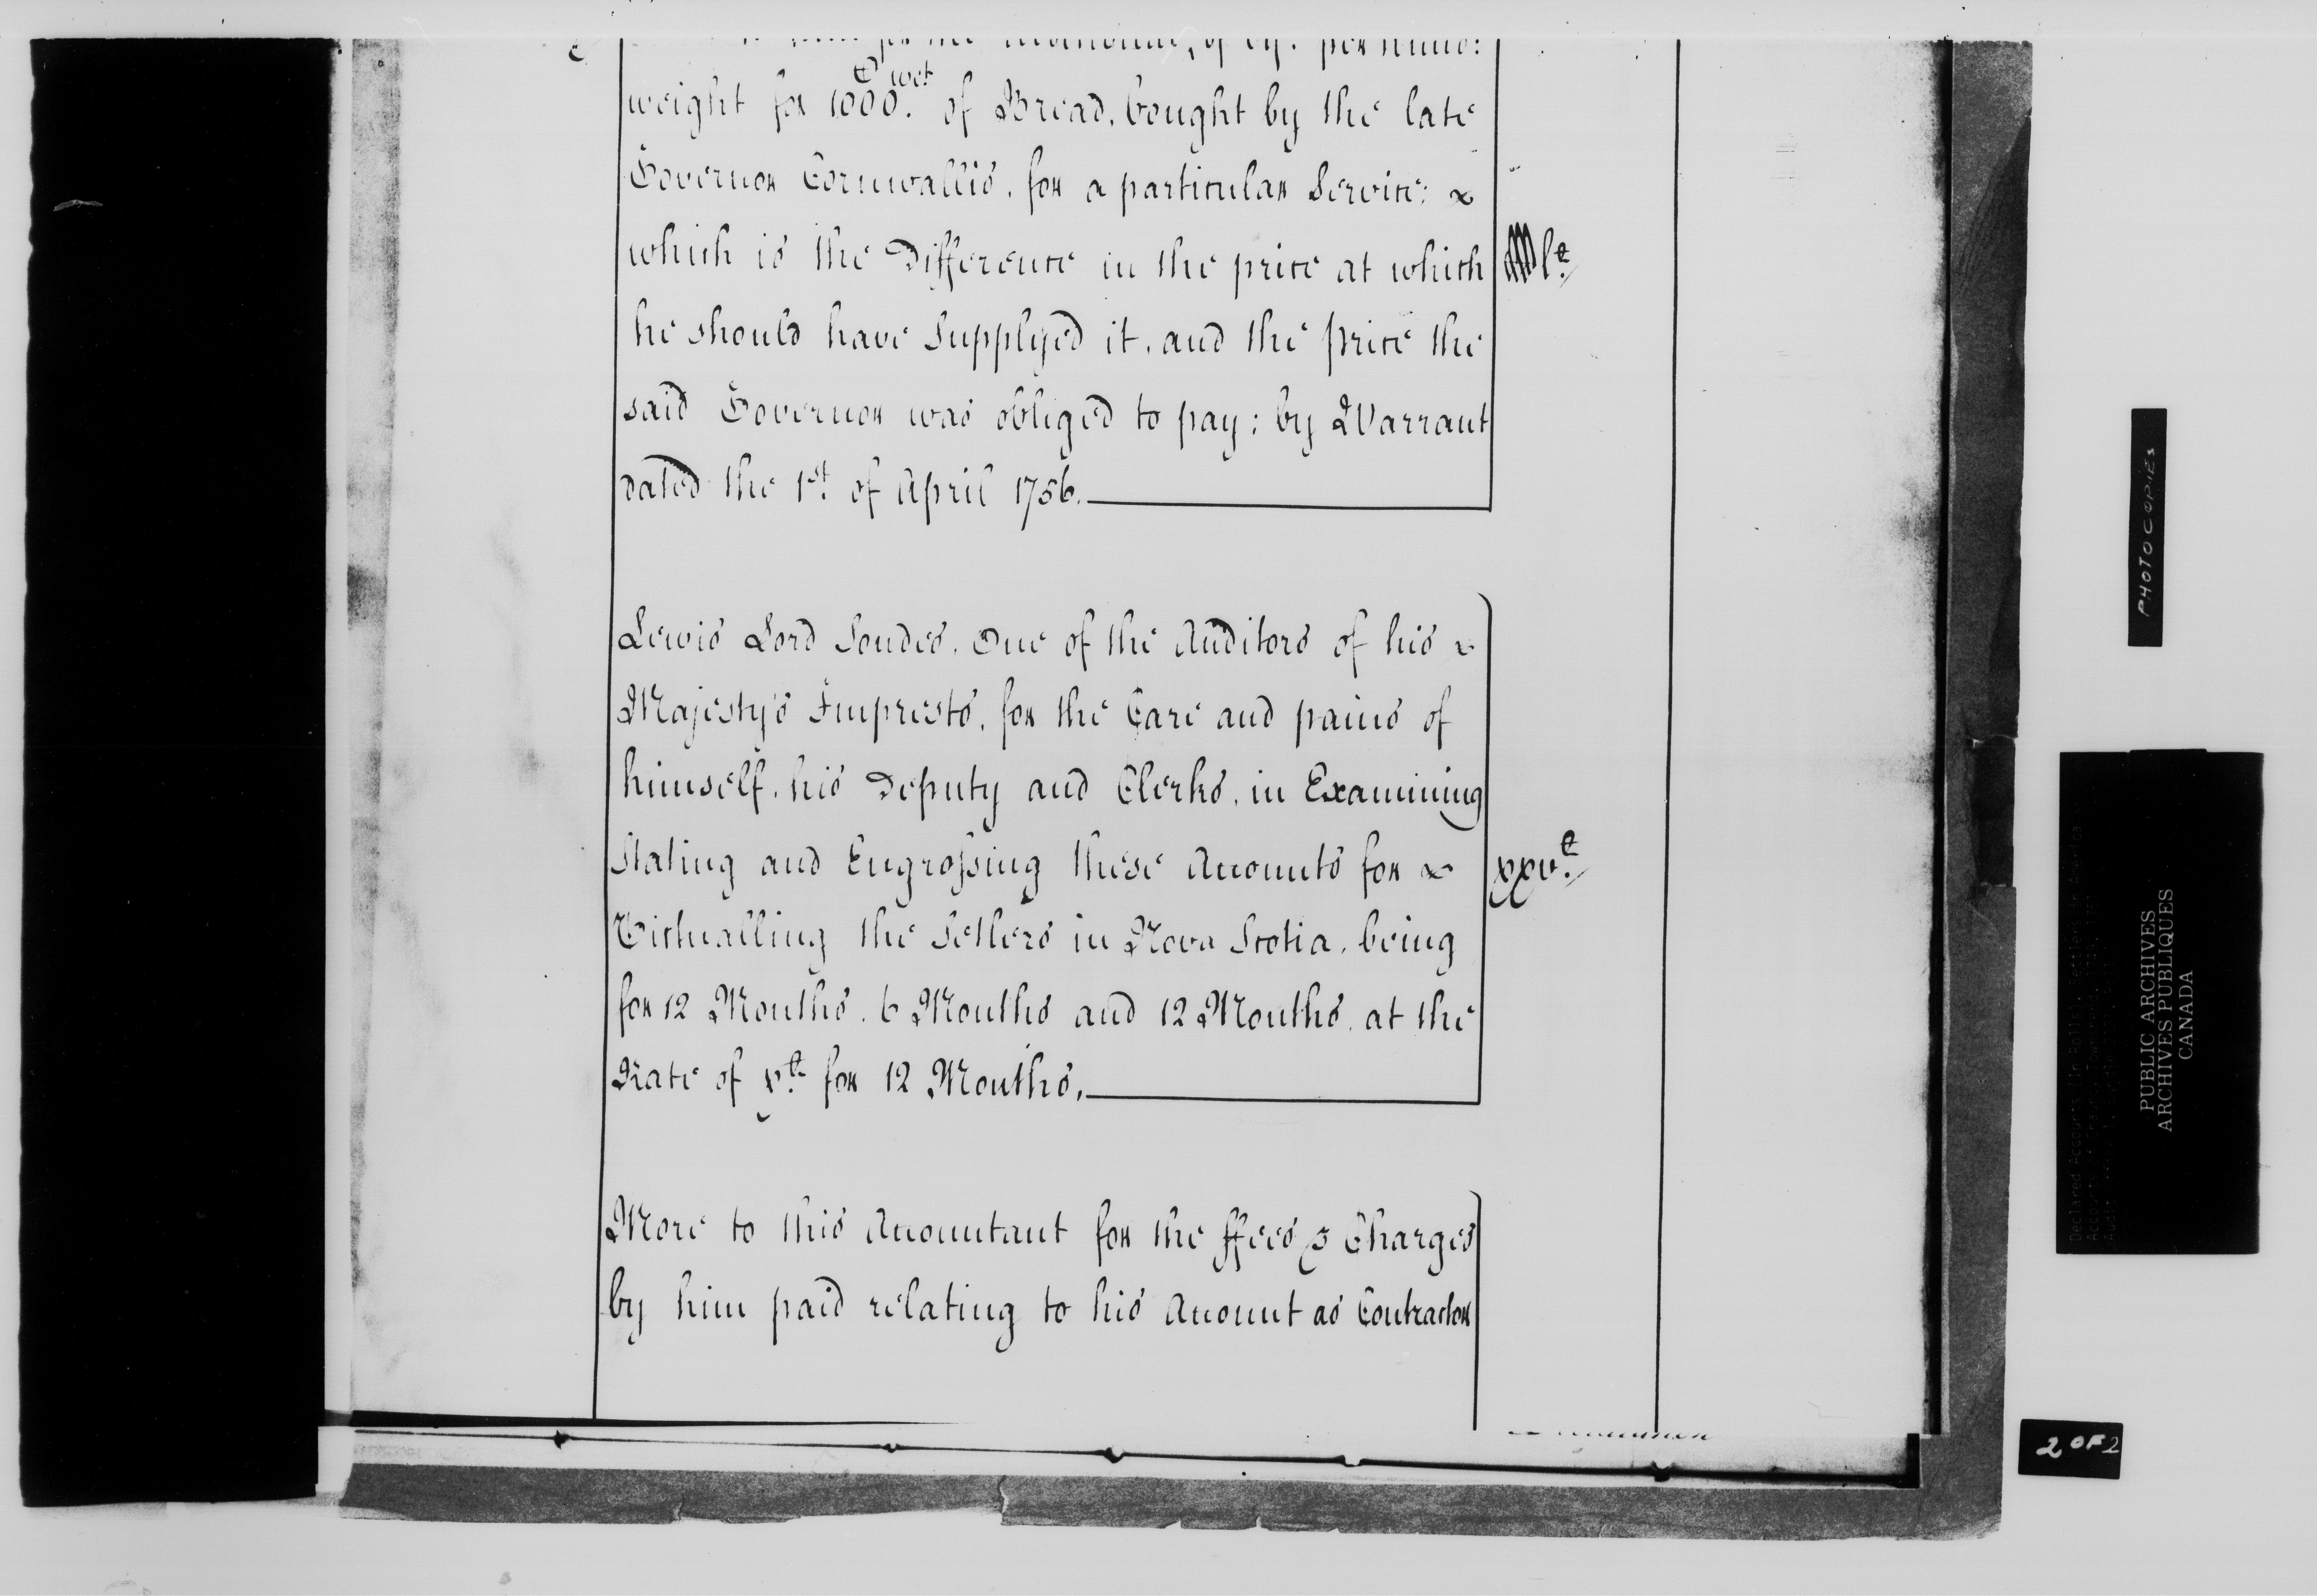 weight for 1000. C wt of Bread, bought by the late
Governor Cornwallis, for a particular Service;
which is the Difference in the price at which
he should have Supplyed it, and the price the
said Governor was obliged to pay; by Warrant
dated the 1st. of April 1756.
Lewis Lord Sondes, One of the Auditors of his
Majesty's Imprests, for the Care and pains of
himself, his Deputy and Clerks, in Examining
Stating and Engrossing these Accounts for
xxv.£
Victualling the Setlers in Nova Scotia, being
for 12 Months, 6 Months and 12 Months, at the
Rate of x.£ for 12 Months,
More to this Accountant for the ffees & Charges
by him paid relating to his Account as Contractor
PHOTOCOPIES
PUBLIC ARCHIVES
ARCHIVES PUBLIQUES
CANADA
2 OF 2